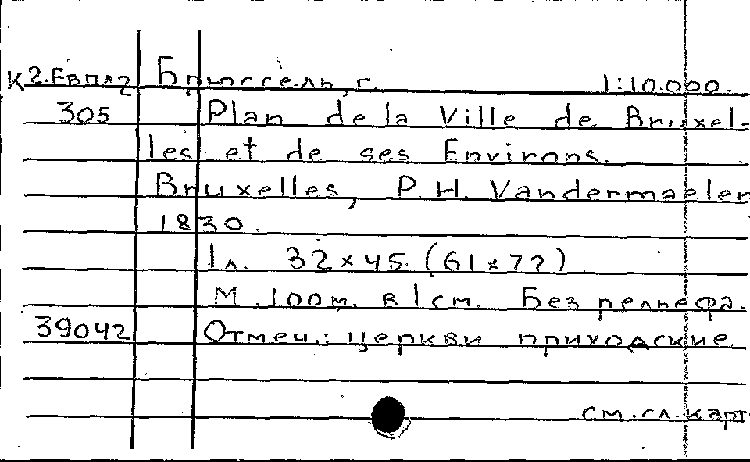 К2.Евпл2 Брюссель, г. 1:10.000.
305 Plan de la Ville de Bruxel-
les et de ses Environs.
Bruxelles, P.H. Vandermaelen
1830.
1 л. 32 x 45. (61 x 72)
М. 100 м. в 1 см. Без рельефа.
39042 Отмеч.: церкви приходские
см. сл. карт